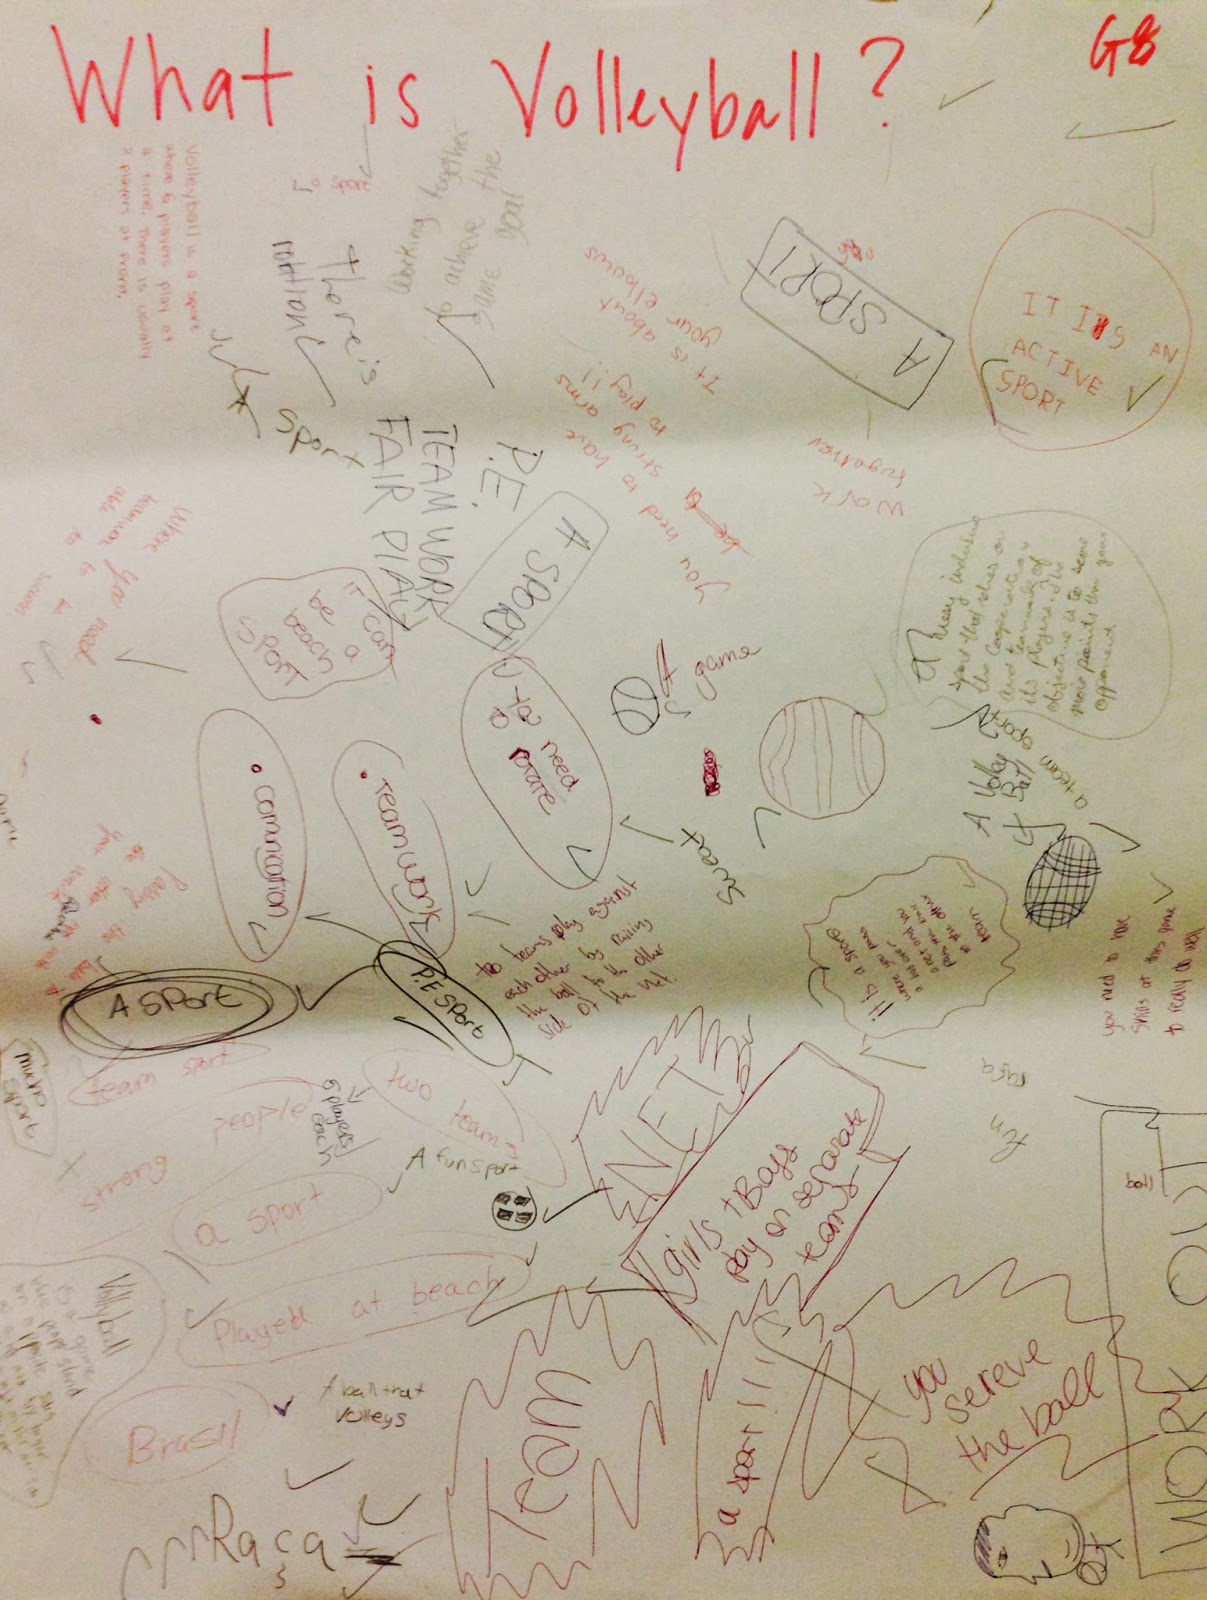 What is Volleyball?
G8
Volleyball is a sport
where 6 players play at
a time. There is usually
2 players at front.
sport
There is
rotation
working together
to achieve the
same goal
It is about
your elbows
A SPORT
IT IS AN
ACTIVE
SPORT
you need to have
strong arms
to play!!
work
together
sport
P.E
TEAM WORK
FAIR PLAY
A SPORT
IT can
be a
beach
SPORT
Where you need
teamwork to be
able to
A game
sport that relies on
the cooperation
and teamwork of
its players. The
objective is to score
more points than your
opponent
to need
rotate
• teamwork
• comunication
Sweat
A Volley
Ball
sport
a team
it is
a sport
where you pass
a ball over
a net and you
the other
team
you need to have
skills at this game
to really do well
to teams play against
each other by
the ball to the other
side of the net.
A SPORT
P.E SPORT
mucho
sport
team sport
people
6 players
each
two
teams
strong
A fun sport
a sport
NET
girls + Boys
play on separate
teams
rasa
ten
ball
WORK OUT
Played at beach
Vollyball
is a game
Brasil
A ball that
volleys
Team
a sport!!!
you
sereve
the ball
Raca
s